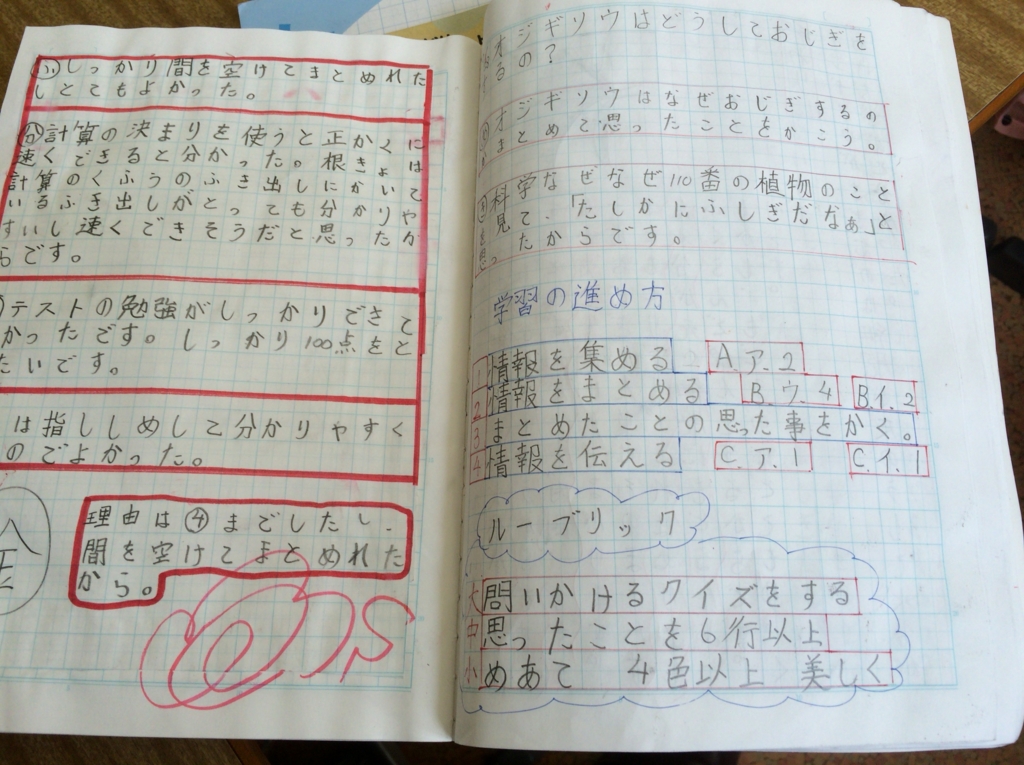 しっかり間を空けてまとめれた
しとてもよかった。
計算の決まりを使うと正かくに
速くできると分かった。根きょは
計算のくふうのふき出しにかいて
いるふき出しがとっても分かりや
すいし速くできそうだと思ったか
らです。
テストの勉強がしっかりできて
かったです。しっかり100点をと
たいです。
は指ししめして分かりやすく
のでよかった。
理由は④までしたし、
間を空けてまとめれた
から。
オジギソウはどうしておじぎを
るの?
オジギソウはなぜおじぎするの
まとめて思ったことをかこう。
科学なぜなぜ110番の植物のこと
見て、「たしかにふしぎだなぁ」と
思ったからです。
学習の進め方
1 情報を集める A.ア.2
2 情報をまとめる B.ウ.4 B.イ.2
3 まとめたことの思った事をかく。
4 情報を伝える C.ア.1 C.イ.1
ルーブリック
大 問いかけるクイズをする
中 思ったことを6行以上
小 めあて 4色以上 美しく